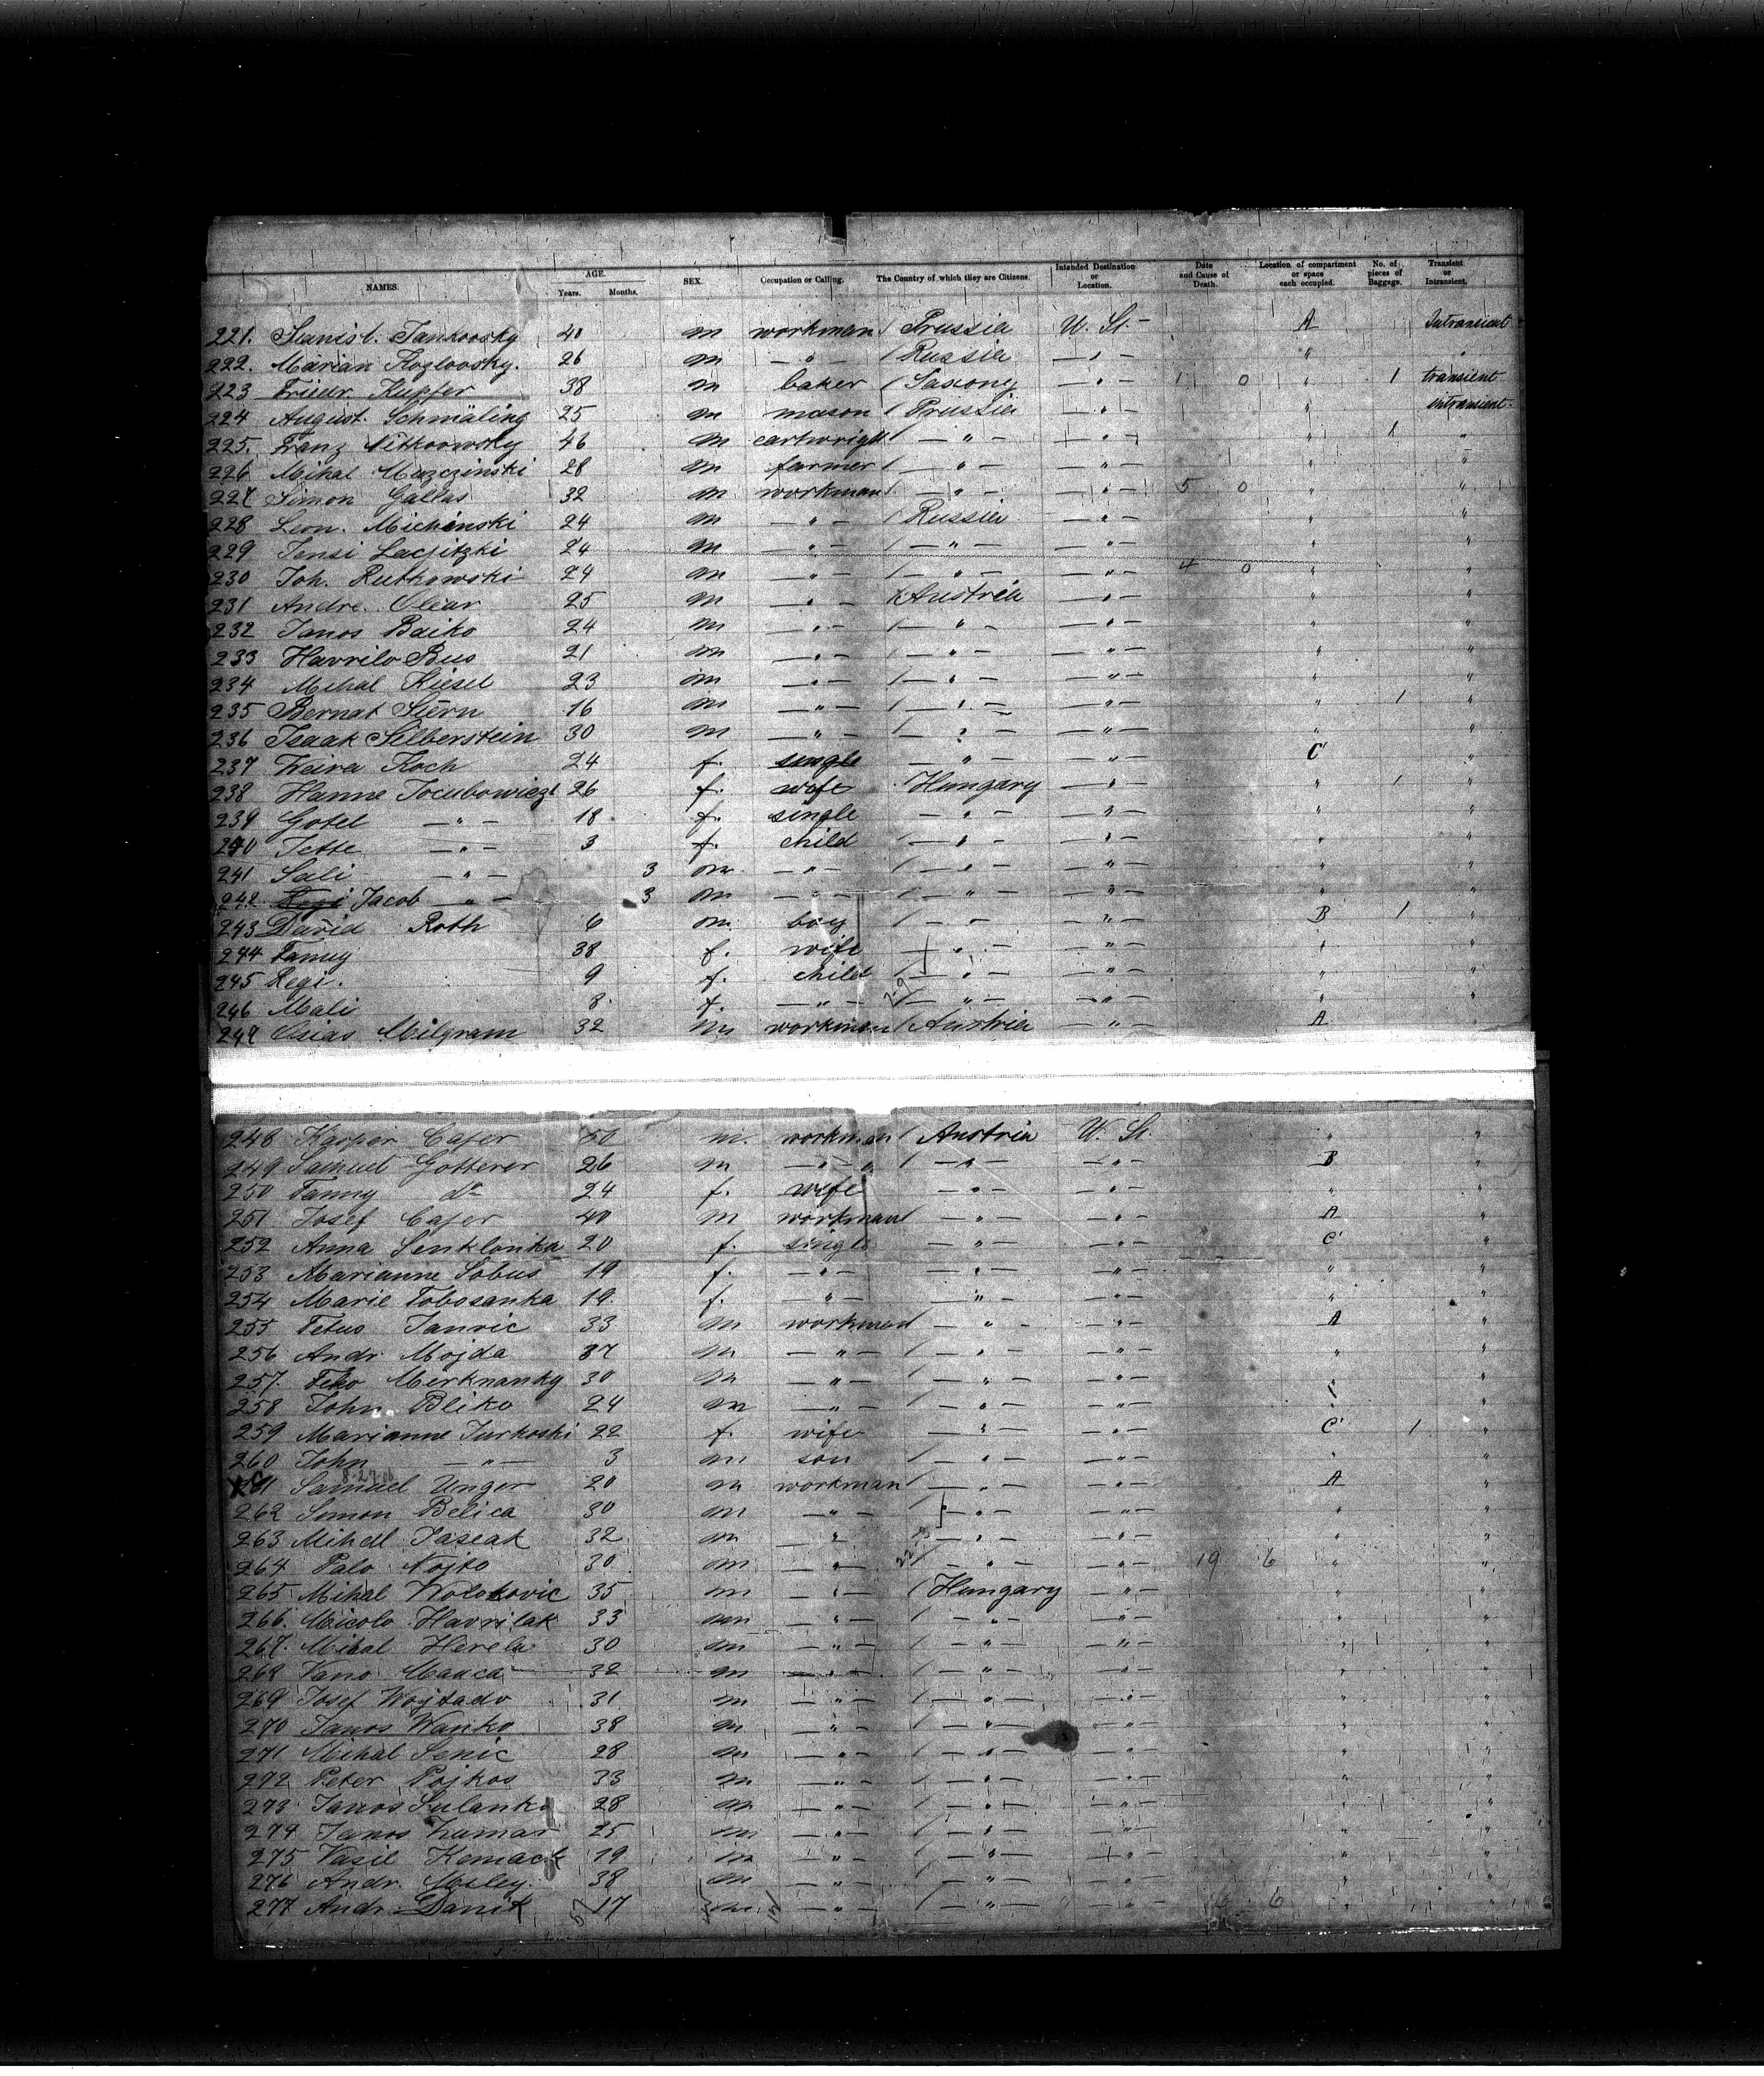 NAMES. AGE. Years. Months. SEX. Occupation or Calling. The Country of which they are Citizens. Intended Destination or Location. Date and Cause of Death. Location of compartment or space each occupied. No. of pieces of Baggage. Transient or Intransient.
221. Stanisl. Jankovsky 40 m workman Prussia U. St. A Intransient
222. Marian Kozlovsky. 26 m — " — Russia — " — " "
223 Friedr. Kupfer 38 m baker Saxony — " — 1 0 " 1 transient
224 August. Schmäling 25 m mason Prussia — " — " intransient
225. Franz 46 m cartwright — " — — " — " 1 "
226 Mihal Muzczinski 28 m farmer — " — — " — " "
227 Simon Gallas 32 m workman — " — — " — 5 0 " "
228 Leon. Michinski 24 m — " — Russia — " — " "
229 24 m — " — — " — — " — " "
230 Joh. Rutkowski 24 m — " — — " — — " — 4 0 " "
231 Andre. Olear 25 m — " — Austria — " — " "
232 Janos Baiko 24 m — " — — " — — " — " "
233 Havrilo Bus 21 m — " — — " — — " — " "
234 Mihal Kiesel 23 m — " — — " — — " — " "
235 Bernat Stern 16 m — " — — " — — " — " 1 "
236 Isaak Silberstein 30 m — " — — " — — " — " "
237 Koch 24 f. single — " — — " — C "
238 Hanne Jocubowicz 26 f. wife Hungary — " — " 1 "
239 Gotel — " — 18 f. single — " — — " — " "
240 Jette — " — 3 f. child — " — — " — " "
241 Sali — " — 3 m — " — — " — — " — " "
242 Jacob — " — 3 m — " — — " — — " — " "
243 David Roth 6 m. boy — " — — " — B 1 "
244 Fanny 38 f. wife — " — — " — " "
245 Regi. 9 f. child — " — — " — " "
246 Mali 8 f. — " — — " — — " — " "
247 Osias Milgram 32 m workman Austria — " — A "
248 Kaspar Cafer 50 m. workman Austria U. St. " "
249 Samuel Gotterer 26 m — " — — " — — " — B "
250 Fanny do 24 f. wife — " — — " — " "
251 Josef Cafer 40 m workman — " — — " — A "
252 Anna Senklonka 20 f. single — " — — " — C "
253 Marianne Sobus 19 f. — " — — " — — " — " "
254 Marie Tobosanka 19. f. — " — — " — — " — " "
255 Janvic 33 m workman — " — — " — A "
256 Andr. Mojda 37 m — " — — " — — " — " "
257. Feko Merknanky 30 m — " — — " — — " — " "
258 John Bliko 24 m — " — — " — — " — " "
259 Marianne Jurkoski 22 f. wife — " — — " — C 1 "
260 John — " — 3 m son — " — — " — " "
8-29-06
261 Samuel Unger 20 m workman — " — — " — A "
262 Simon Belica 30 m — " — — " — — " — " "
263 Mihal Paseak 32 m " — " — — " — " "
264 Palo Nojto 30 m — " — — " — — " — 19 6 " "
265 Mihal Wolokovic 35 m — " — Hungary — " — " "
266. Micolo Havrilak 33 m — " — — " — — " — " "
267. Mihal Herela 30 m — " — — " — — " — " "
268 Vano 32 m — " — — " — — " — " "
269 Josef Wojtado 31 m — " — — " — — " — " "
270 Janos Wanko 38 m — " — — " — — " — " "
271 Mihal Senic 28 m — " — — " — — " — " "
272 Peter Pojkos 33 m — " — — " — — " — " "
273 Janos Sulanko 28 m — " — — " — — " — " "
274 Janos 25 m — " — — " — — " — " "
275 Vasil Komack 19 m — " — — " — — " — " "
276 Andr. Misley. 38 m — " — — " — — " — " "
277 Andr. Danik 17 m — " — — " — — " — 6 6 " "